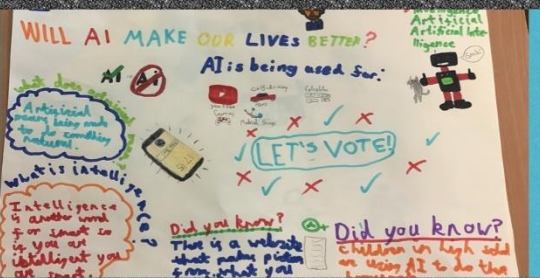 WILL AI MAKE OUR LIVES BETTER?
Artificial
Artificial Inte-
lligence
AI is being used for:
AI
AI
what does artificial mean
Artificial
means being made
to do something
natural.
What is intelligence?
Intelligence
is another word
for smart so
if you are
intelligent you
are smart.
LET'S VOTE!
Did you know?
There is a website
that makes pictures
from what you
A+
Did you know?
Children in high school
are using AI to do their